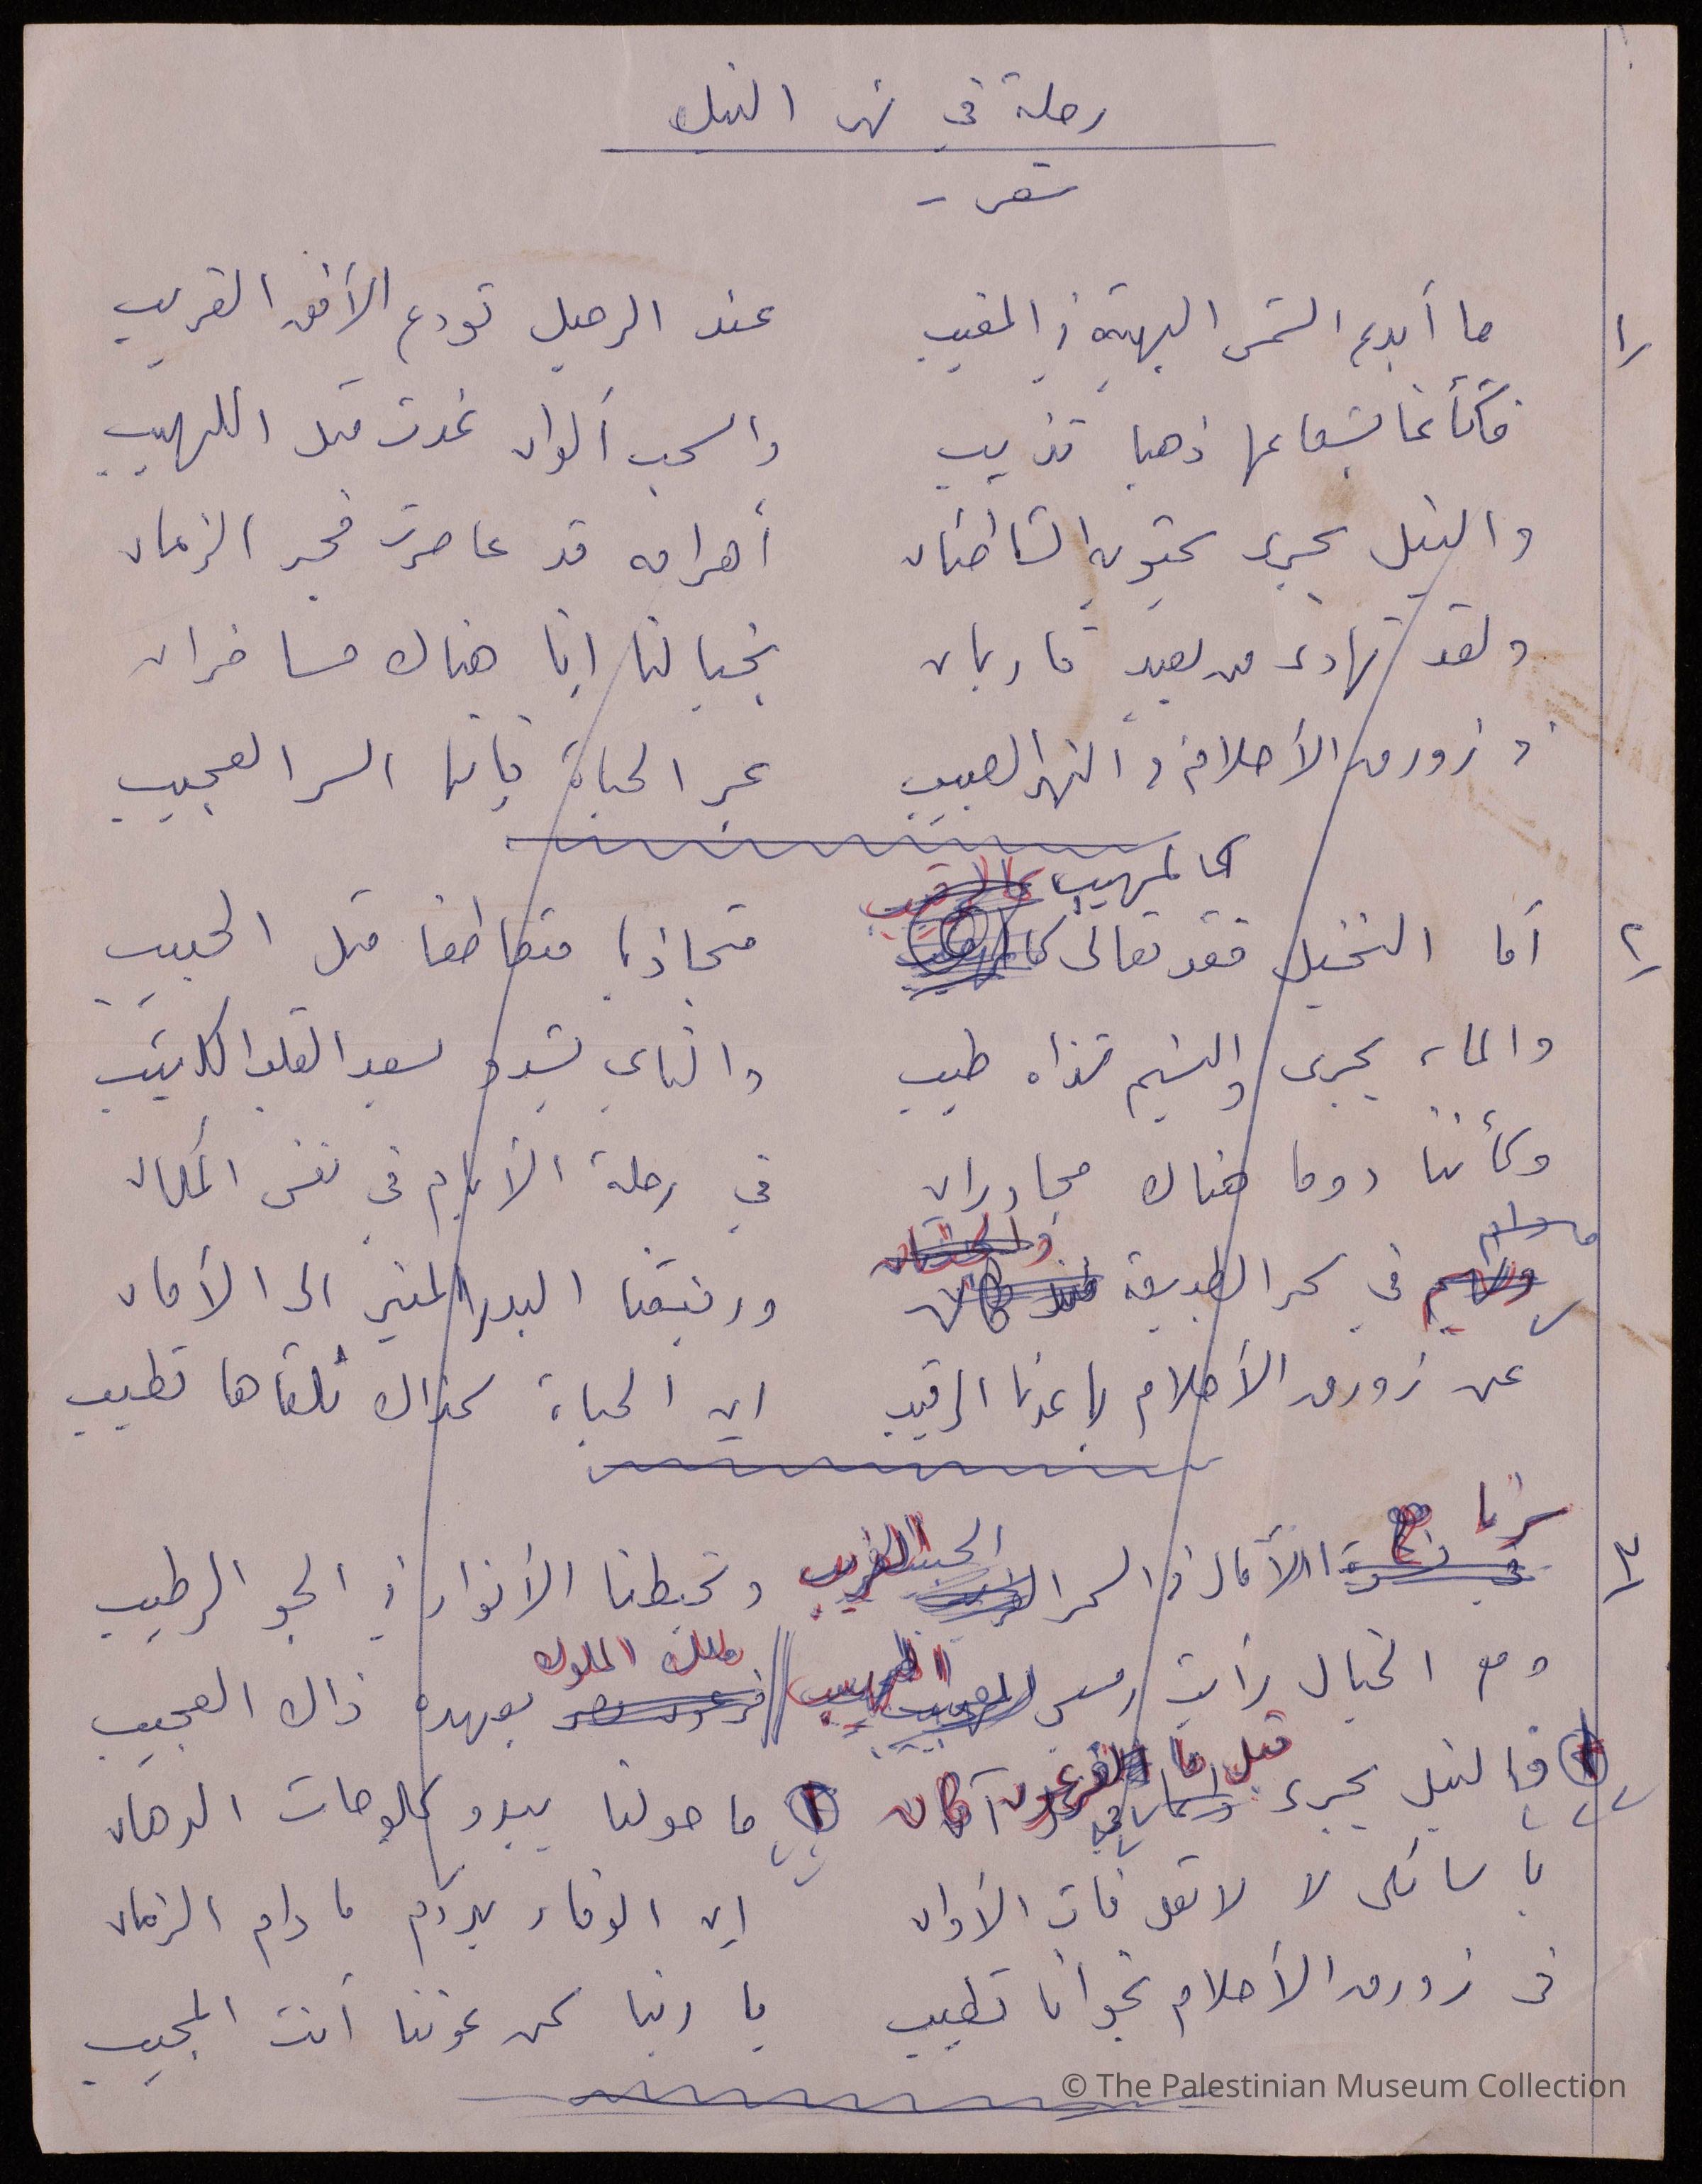 رحلة في نهر النيل
شعر -
١/ ما أبدع الشمس البهية في المغيب عند الرحيل تودع الأفق القريب
فكأنما بشعاعها ذهبا تذيب والسحب ألوان غدت مثل اللهيب
والنيل يجري يحتويه الشاطئان أهرامه قد عاصرت فجر الزمان
ولقد تهادى من بعيد قاربان بخيالنا انا هناك مسافران
و زورق الأحلام و النهر الحبيب عبر الحياة فإنها السر العجيب
كالمهيب
٢/ أما النخيل فقد تعالى متجاذبا متعاطفا مثل الحبيب
والماء يجرى والنسيم شذاه طيب والناي يشدو يسعد القلب الكئيب
وكأننا دوما هناك مجاوران في رحلة الأيام في نفس المكان
في سحر الطبيعة ورفيقنا البدر المنير الى الأمان
عن زورق الأحلام باعدنا الرقيب ان الحياة كذاك نلقاها تطيب
سرنا
٣/ الأمال في السحر وتحيطنا الأنوار في الجو الرطيب
ملك الملوك
ومع الخيال رأيت رمسيس بعهده ذاك العجيب
قبل ما
فالنيل يجرى كان ما حولنا يبدو كلوحات الدهان
يا سائلى لا لا تقل فات الأوان ان الوفاء يدوم ما دام الزمان
فى زورق الأحلام نجوانا تطيب يا ربنا كن عوننا أنت المجيب
© The Palestinian Museum Collection